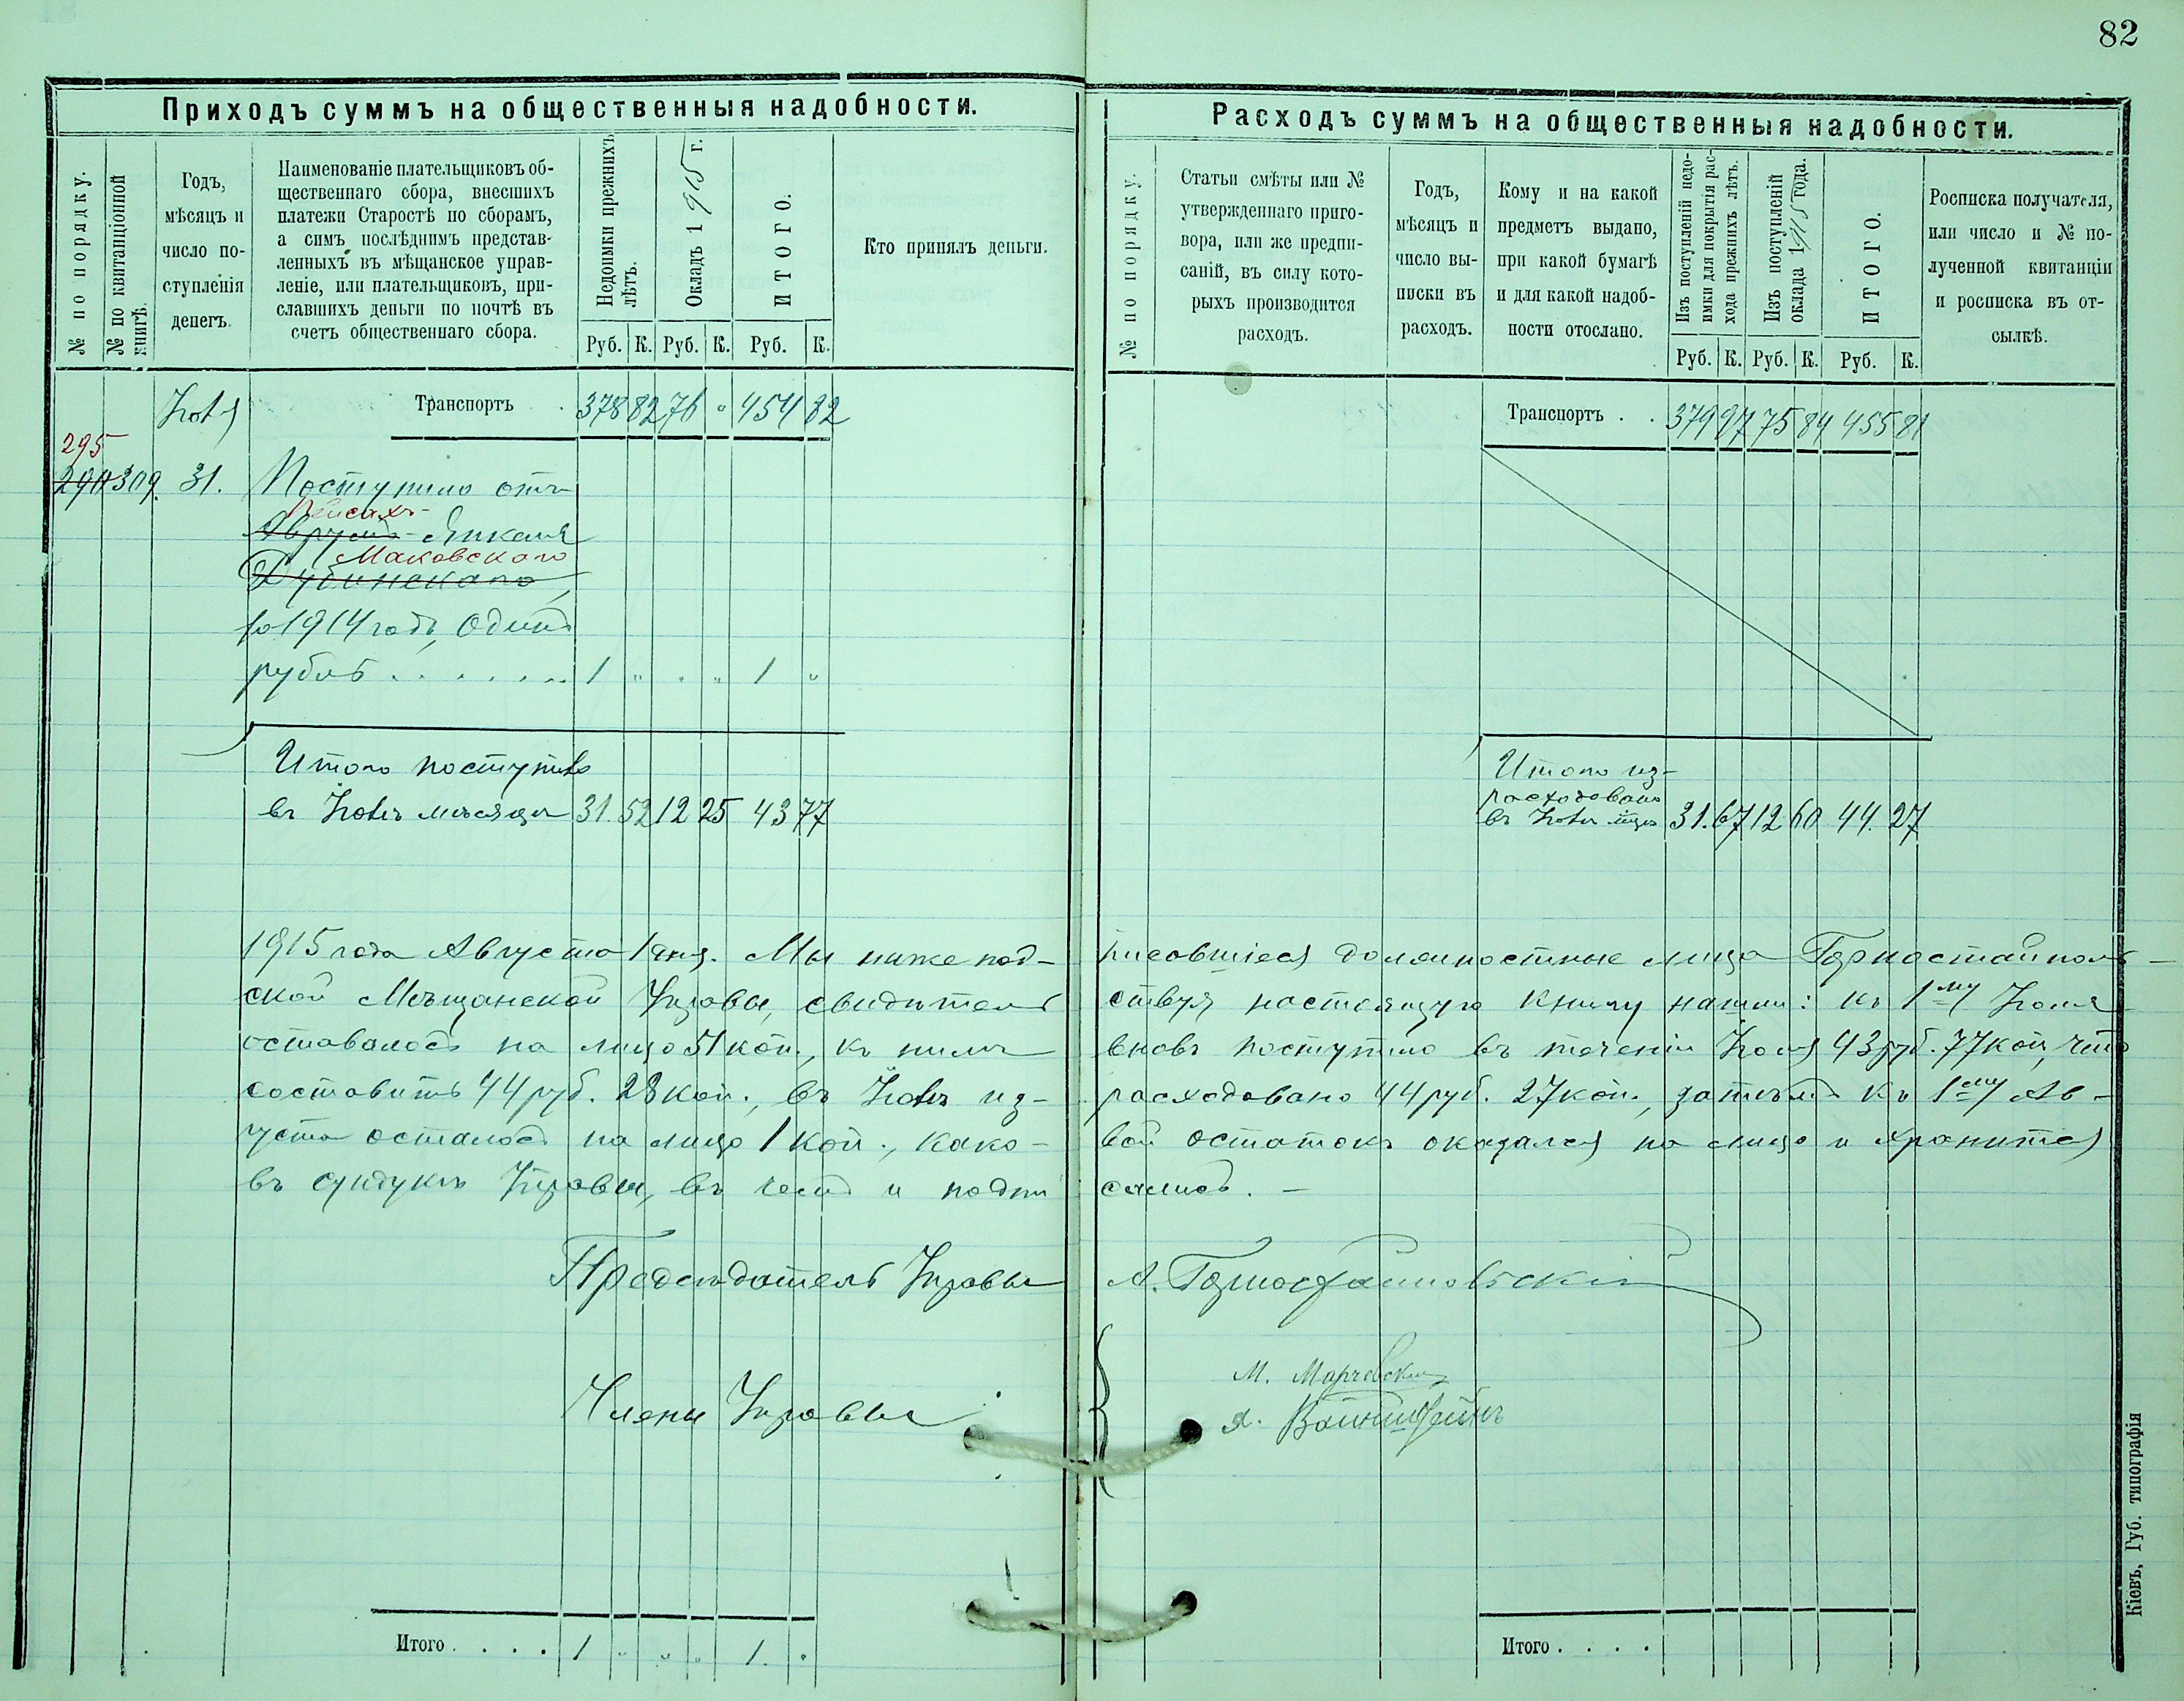 82
Приходъ суммъ на общественныя надобности.
№ по порядку.
№ по квитанціонной книгѣ.
Годъ,
мѣсяцъ и
число по-
ступленія
денегъ.
Наименованіе плательщиковъ об-
щественнаго сбора, внесшихъ
платежи Старостѣ по сборамъ,
а симъ послѣднимъ представ-
ленныхъ въ мѣщанское управ-
леніе, или плательщиковъ, при-
славшихъ деньги по почтѣ въ
счетъ общественнаго сбора.
Недоимки прежнихъ
лѣтъ.
Окладъ 1915 г.
ИТОГО.
Кто принялъ деньги.
Руб. К. Руб. К. Руб. К.
Іюля Транспортъ . 378 82 76 " 454 82
295
294 309. 31. Поступило отъ
Пейсахъ-
Аврумъ-Янкеля
Маковскаго
Дубинскаго,
за 1914 годъ, одинъ
рубль . . . . . . 1 " " " 1 "
Итого поступило
въ Іюлѣ мѣсяцѣ 31. 52 12 25 43 77
Расходъ суммъ на общественныя надобности.
№ по порядку.
Статьи смѣты или №
утвержденнаго приго-
вора, или же предпи-
саній, въ силу кото-
рыхъ производится
расходъ.
Годъ,
мѣсяцъ и
число вы-
писки въ
расходъ.
Кому и на какой
предметъ выдано,
при какой бумагѣ
и для какой надоб-
ности отослано.
Изъ поступленій недо-
имки для покрытія рас-
хода прежнихъ лѣтъ.
Изъ поступленій
оклада 1915 года.
ИТОГО.
Росписка получателя,
или число и № по-
лученной квитанціи
и росписка въ от-
сылкѣ.
Руб. К. Руб. К. Руб. К.
Транспортъ . . 379 97 75 84 455 81
Итого из-
расходовано
въ Іюлѣ мцѣ 31. 67 12 60 44. 27
1915 года Августа 1 дня. Мы нижепод- писавшіеся должностные лица Горностайполь-
ской Мѣщанской Управы, свидѣтель ствуя настоящую книгу нашли: къ 1му Іюля
оставалось на лицо 51 коп., къ нимъ вновь поступило въ теченіи Іюля 43 руб. 77 коп, что
составитъ 44 руб. 28 коп., въ Іюлѣ из- расходовано 44 руб. 27 коп., затѣмъ къ 1му Ав-
густа осталось на лицо 1 коп., како- вой остатокъ оказался на лицо и хранится
въ сундукѣ Управы, въ чемъ и подпи сались. —
Предсѣдатель Управы А. Горностайпольскій
Члены Управы
М. Марчевскій
Я. Вайнштейнъ
Итого . . . . 1 " " " 1. "
Итого . . . .
Кіевъ, Губ. типографія